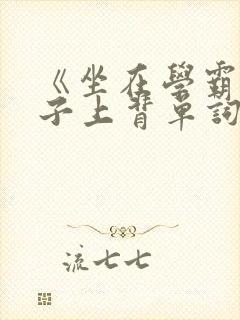 《坐在學霸
子上背單詞
流七七